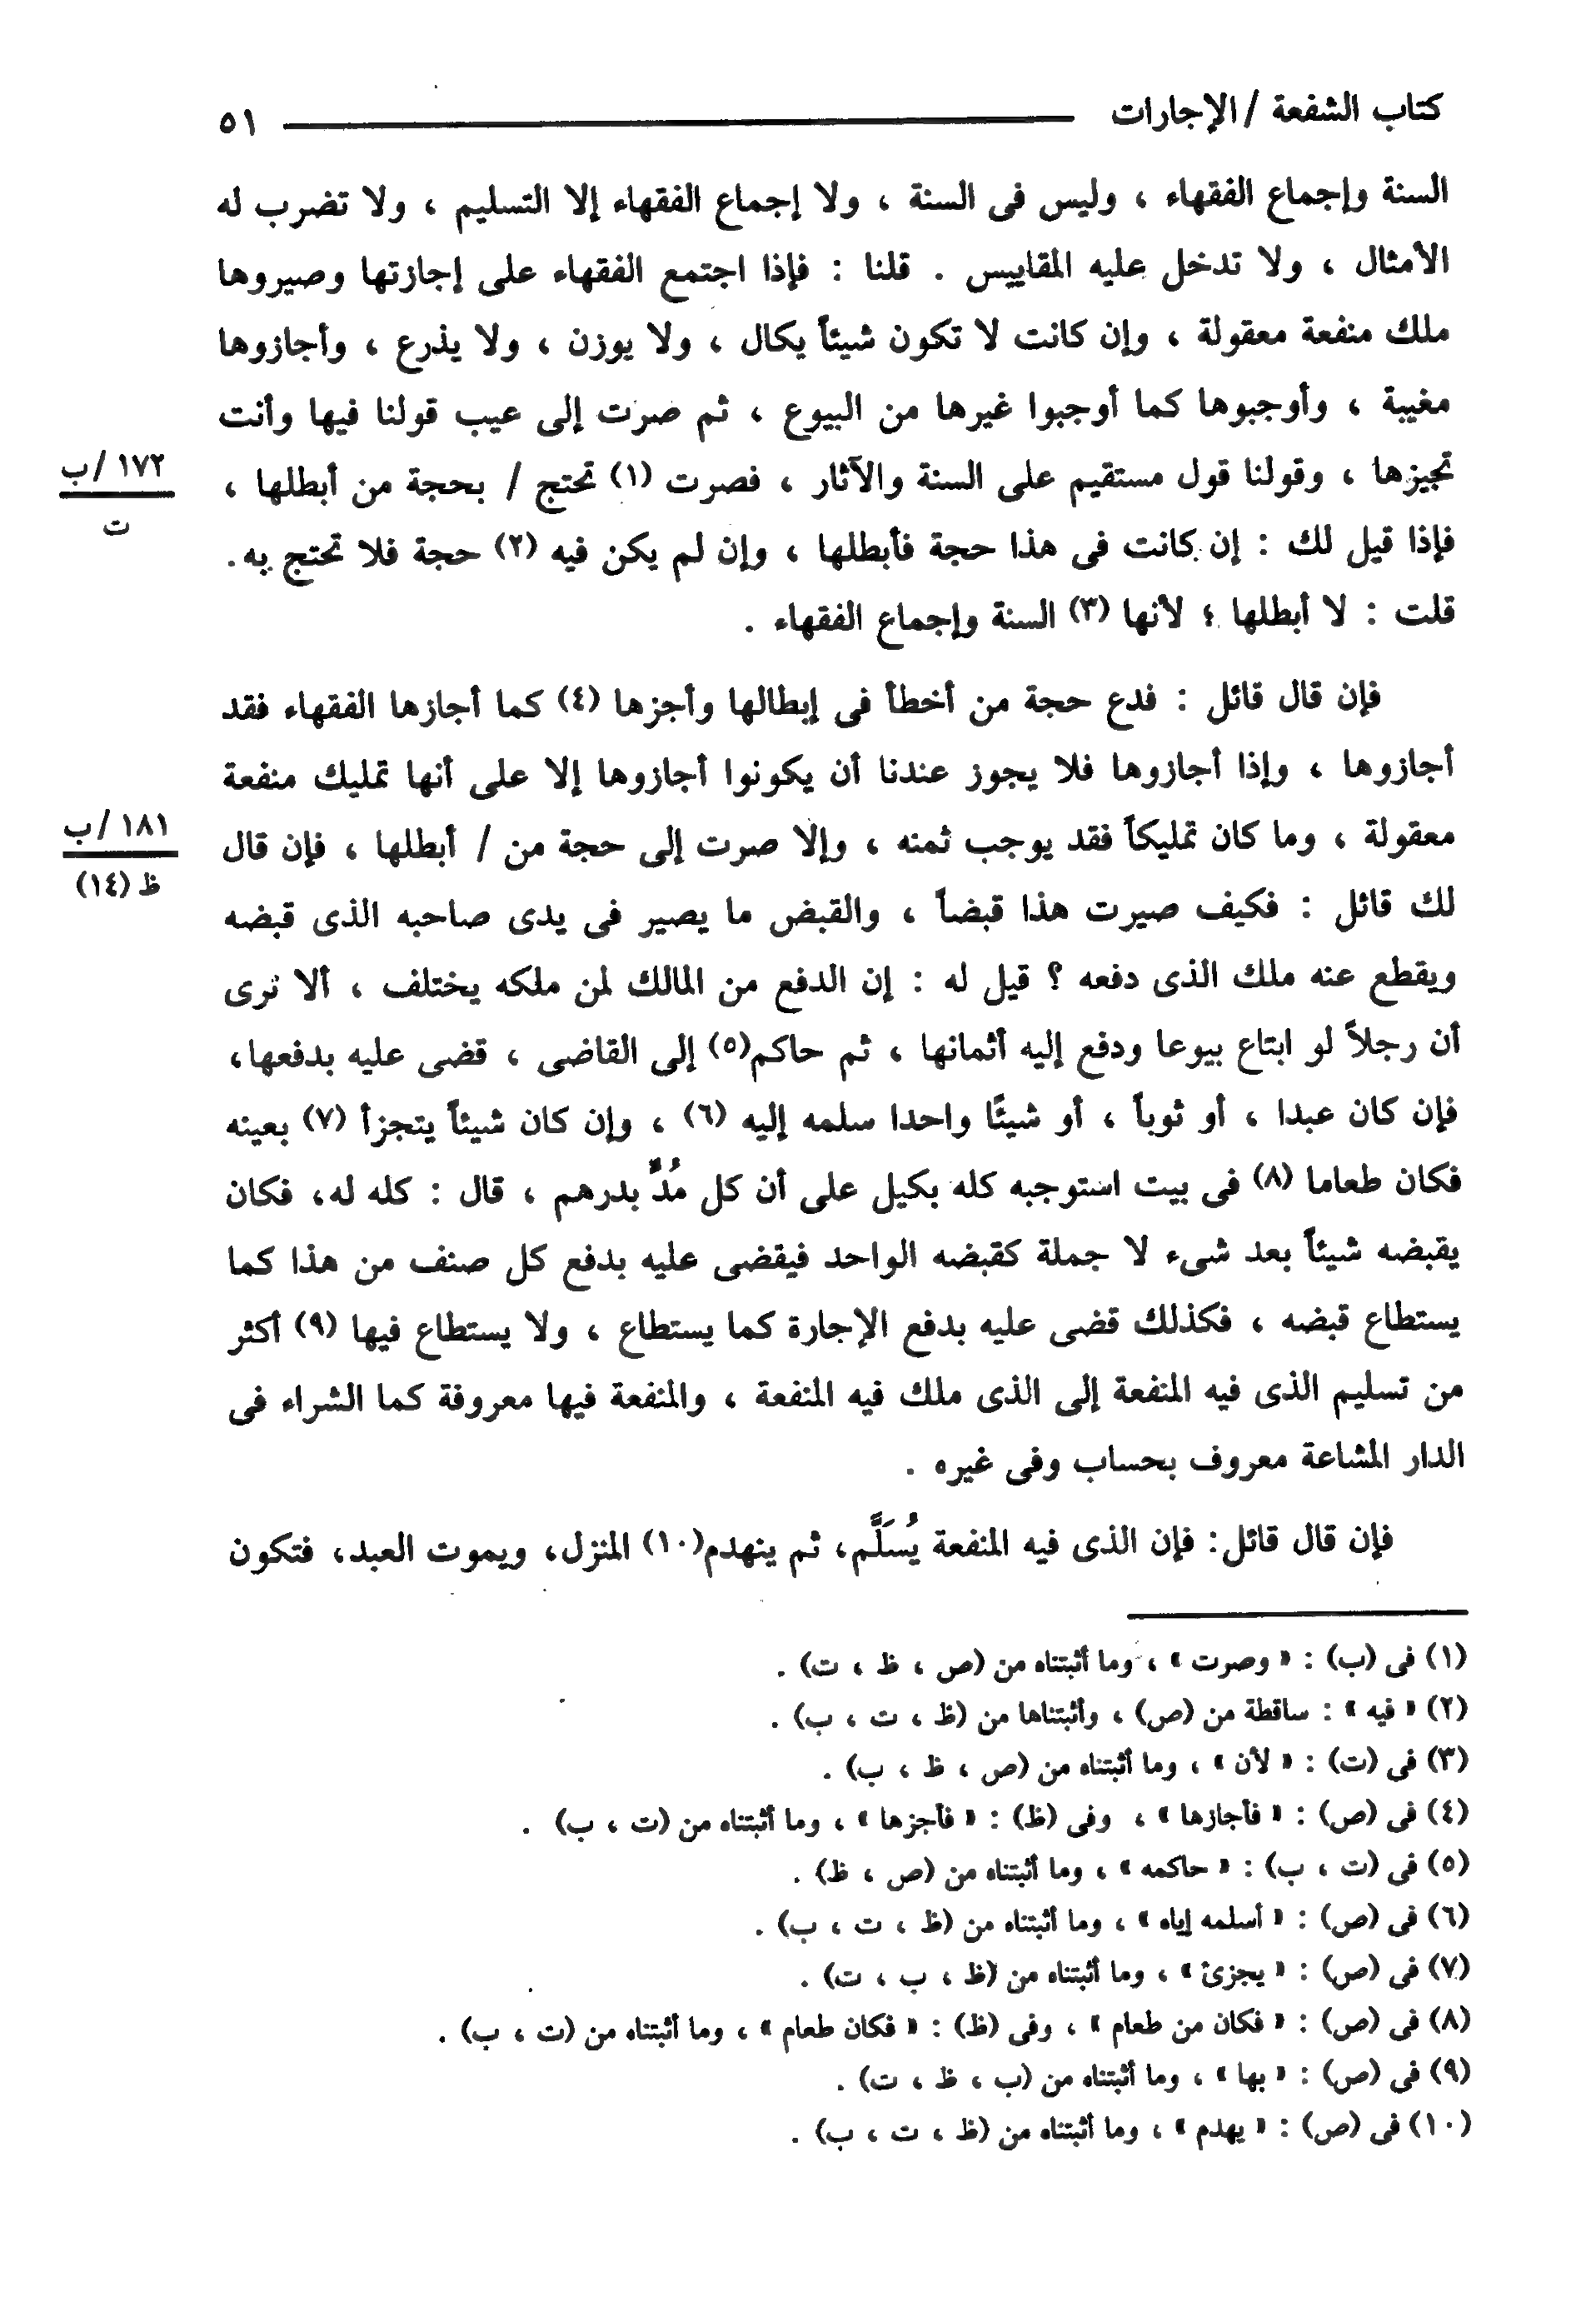 كتاب الشفعة / الإجارات ٥١
السنة وإجماع الفقهاء ، وليس فى السنة ، ولا إجماع الفقهاء إلا التسليم ، ولا تضرب له
الأمثال ، ولا تدخل عليه المقاييس . قلنا : فإذا اجتمع الفقهاء على إجازتها وصيروها
ملك منفعة معقولة ، وإن كانت لا تكون شيئاً يكال ، ولا يوزن ، ولا يذرع ، وأجازوها
مغيبة ، وأوجبوها كما أوجبوا غيرها من البيوع ، ثم صرت إلى عيب قولنا فيها وأنت
تجيزها ، وقولنا قول مستقيم على السنة والآثار ، فصرت (١) تحتج / بحجة من أبطلها ،
١٧٢ /ب
ت
فإذا قيل لك : إن كانت فى هذا حجة فأبطلها ، وإن لم يكن فيه (٢) حجة فلا تحتج به.
قلت : لا أبطلها ؛ لأنها (٣) السنة وإجماع الفقهاء .
فإن قال قائل : فدع حجة من أخطأ فى إبطالها وأجزها (٤) كما أجازها الفقهاء فقد
أجازوها ، وإذا أجازوها فلا يجوز عندنا أن يكونوا أجازوها إلا على أنها تمليك منفعة
معقولة ، وما كان تمليكاً فقد يوجب ثمنه ، وإلا صرت إلى حجة من / أبطلها ، فإن قال
١٨١ /ب
ظ (١٤)
لك قائل : فكيف صيرت هذا قبضاً ، والقبض ما يصير فى يدى صاحبه الذى قبضه
ويقطع عنه ملك الذى دفعه ؟ قيل له : إن الدفع من المالك لمن ملكه يختلف ، ألا ترى
أن رجلاً لو ابتاع بيوعا ودفع إليه أثمانها ، ثم حاكم(٥) إلى القاضى ، قضى عليه بدفعها،
فإن كان عبدا ، أو ثوباً ، أو شيئًا واحدا سلمه إليه (٦) ، وإن كان شيئاً يتجزأ (٧) بعينه
فكان طعاما (٨) فى بيت استوجبه كله بكيل على أن كل مُدٍّ بدرهم ، قال : كله له، فكان
يقبضه شيئاً بعد شىء لا جملة كقبضه الواحد فيقضى عليه بدفع كل صنف من هذا كما
يستطاع قبضه ، فكذلك قضى عليه بدفع الإجارة كما يستطاع ، ولا يستطاع فيها (٩) أكثر
من تسليم الذى فيه المنفعة إلى الذى ملك فيه المنفعة ، والمنفعة فيها معروفة كما الشراء فى
الدار المشاعة معروف بحساب وفى غيره .
فإن قال قائل: فإن الذى فيه المنفعة يُسَلَّم، ثم ينهدم(١٠) المنزل، ويموت العبد، فتكون
(١) فى (ب) : « وصرت » ، وما أثبتناه من (ص ، ظ ، ت) .
(٢) « فيه » : ساقطة من (ص) ، وأثبتناها من (ظ ، ت ، ب) .
(٣) فى (ت) : « لأن » ، وما أثبتناه من (ص ، ظ ، ب) .
(٤) فى (ص) : « فأجازها » ، وفى (ظ) : « فأجزها » ، وما أثبتناه من (ت ، ب) .
(٥) فى (ت ، ب) : « حاكمه » ، وما أثبتناه من (ص ، ظ) .
(٦) فى (ص) : « أسلمه إياه » ، وما أثبتناه من (ظ ، ت ، ب) .
(٧) فى (ص) : « يجزئ » ، وما أثبتناه من (ظ ، ب ، ت) .
(٨) فى (ص) : « فكان من طعام » ، وفى (ظ) : « فكان طعام » ، وما أثبتناه من (ت ، ب) .
(٩) فى (ص) : « بها » ، وما أثبتناه من (ب ، ظ ، ت) .
(١٠) فى (ص) : « يهدم » ، وما أثبتناه من (ظ ، ت ، ب) .